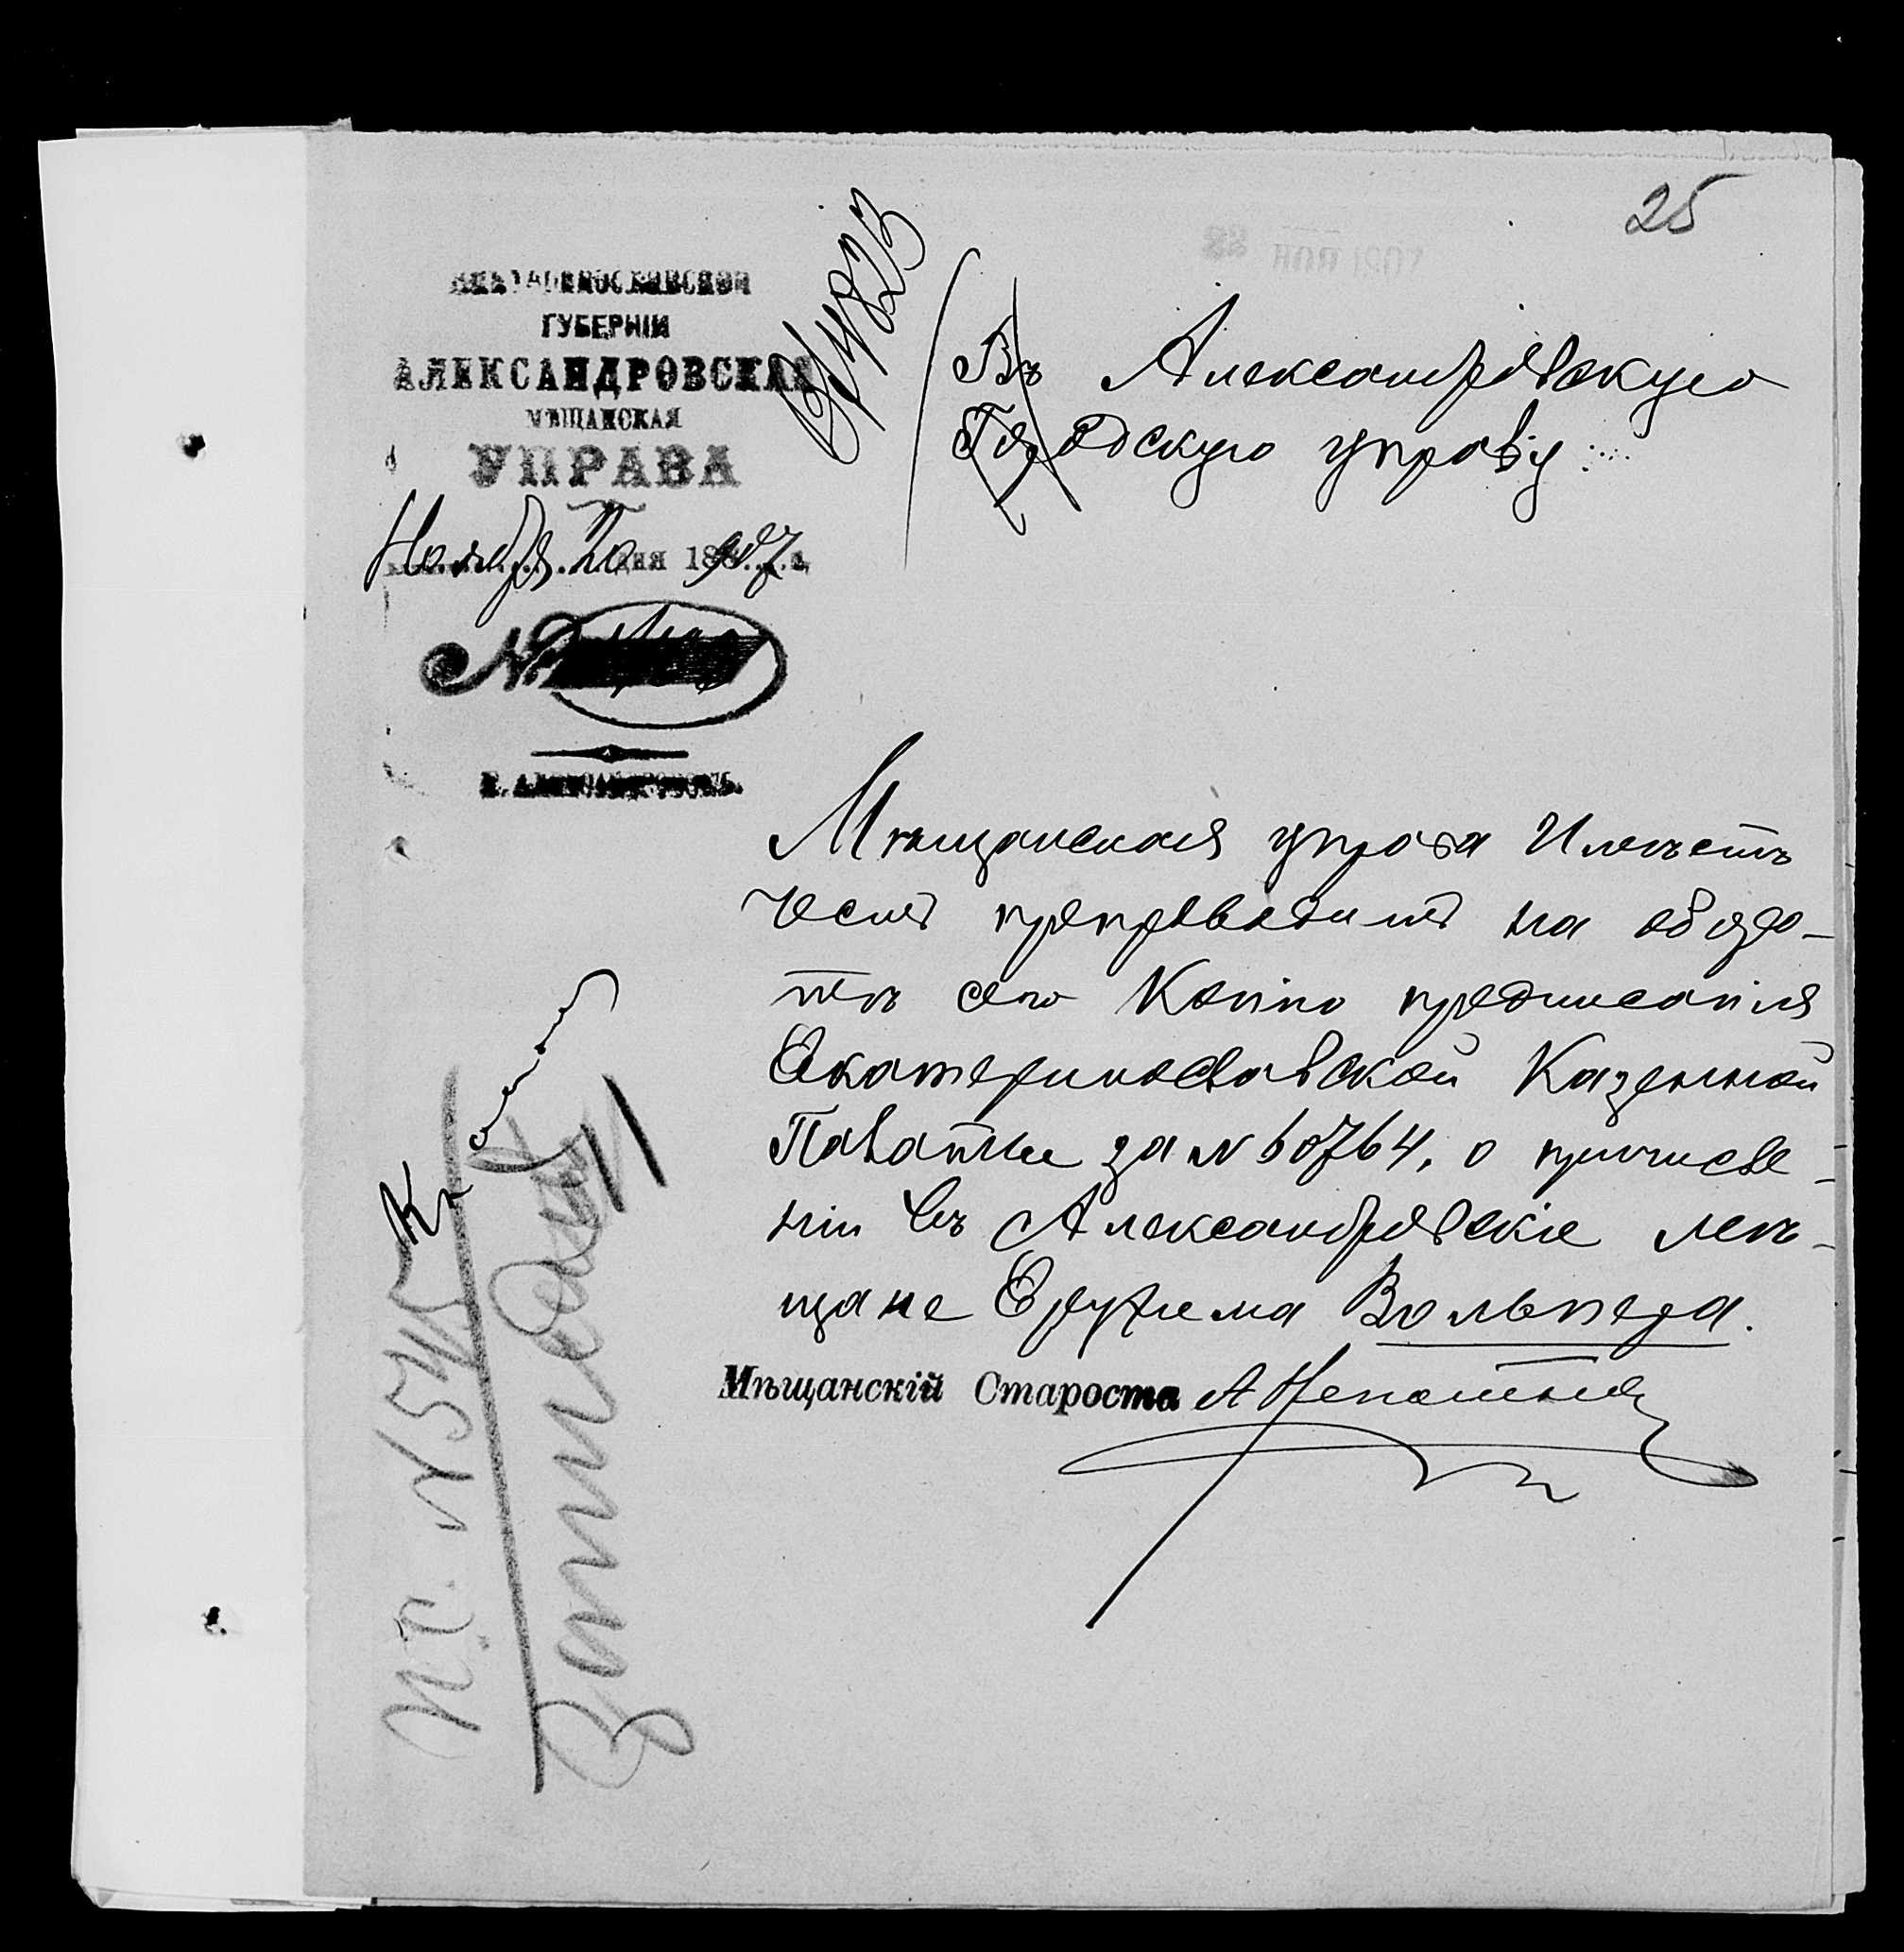 25
ЕКАТЕРИНОСЛАВСКОЙ
ГУБЕРНІИ
АЛЕКСАНДРОВСКАЯ
МѢЩАНСКАЯ
УПРАВА
Ноября 20 дня 1907 г.
№
Г. АЛЕКСАНДРОВСКЪ.
4823
Въ Александровскую
Городскую управу
Мѣщанская управа Имѣетъ
честь препроводить на оборо-
тѣ сего Копію предписанія
Екатеринославской Казенной
Палаты за № 60764, о причисле-
ніи въ Александровскіе мѣ-
щане Ефрема Вольпера.
Мѣщанскій Староста